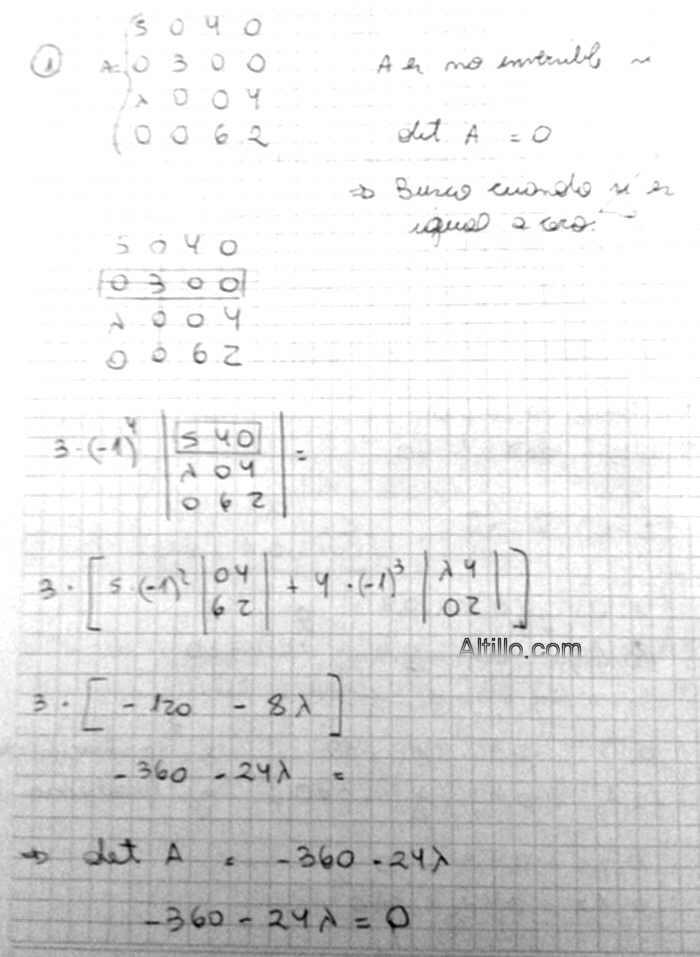 ① A = ( 5 0 4 0
0 3 0 0
λ 0 0 4
0 0 6 2
A es no invertible si
det A = 0
⇒ Busco cuando si es
igual a cero.
5 0 4 0
0 3 0 0
λ 0 0 4
0 0 6 2
3 · (-1)^4 | 5 4 0 | =
| λ 0 4 |
| 0 6 2 |
3 · [ 5 · (-1)^2 | 0 4 | + 4 · (-1)^3 | λ 4 | ]
| 6 2 | | 0 2 |
Altillo.com
3 · [ - 120 - 8λ ]
- 360 - 24λ =
⇒ det A = -360 - 24λ
-360 - 24λ = 0